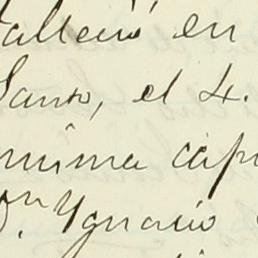 falleció en
Santo, el 4.
misma cap
Dn. Ygnacio